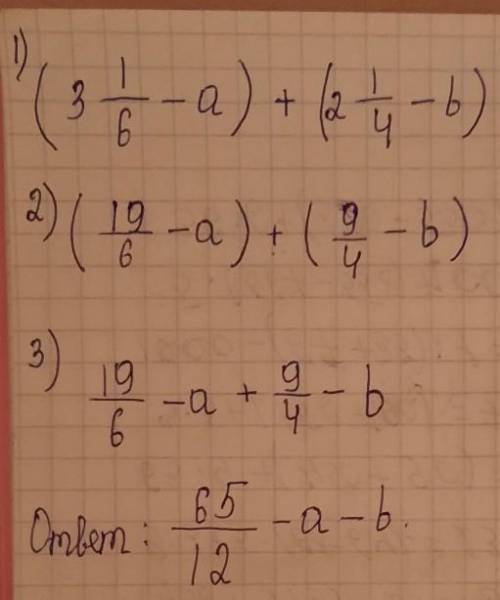 1) (3 1/6 - a) + (2 1/4 - b)
2) (19/6 - a) + (9/4 - b)
3) 19/6 - a + 9/4 - b
Ответ: 65/12 - a - b.